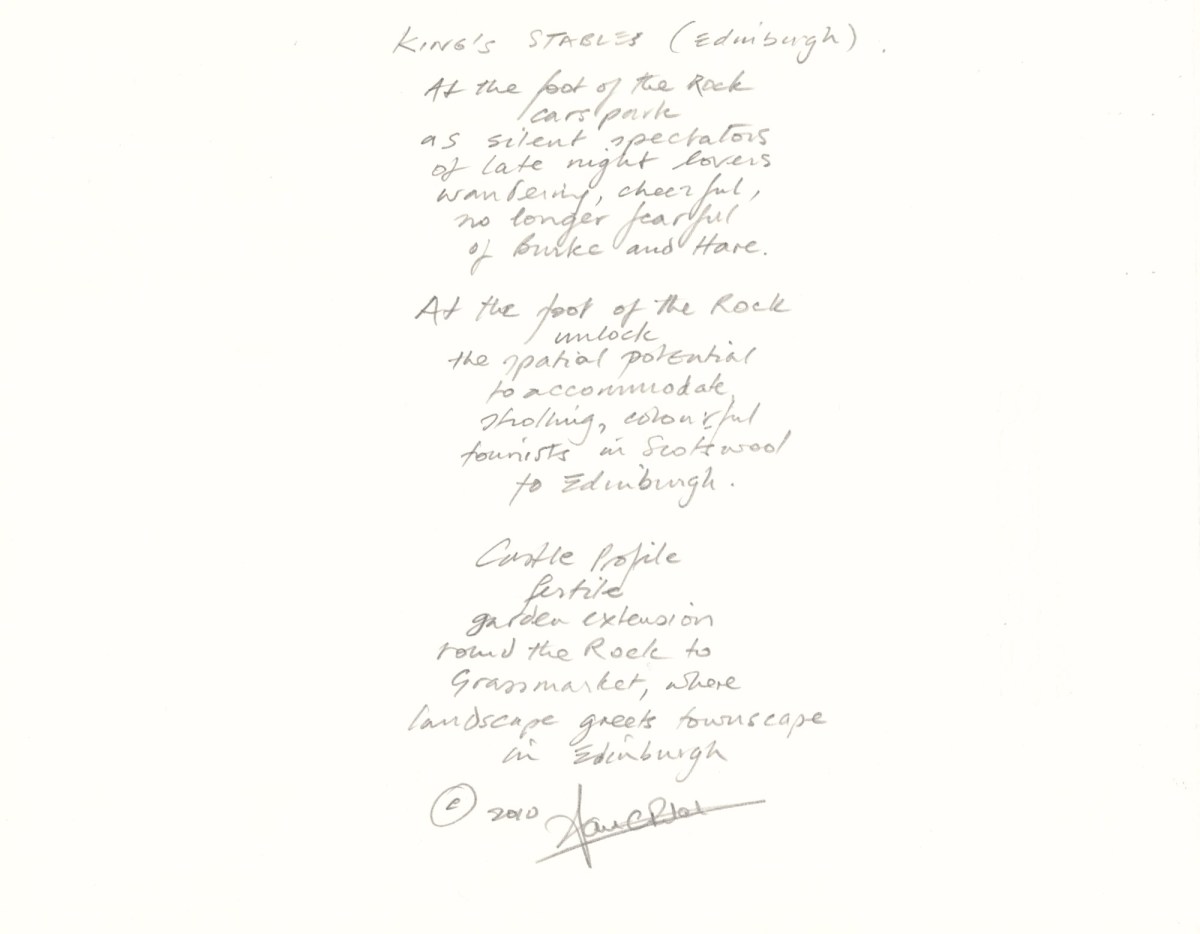 KING'S STABLES (Edinburgh).
At the foot of the Rock
cars park
as silent spectators
of late night lovers
wandering, cheerful,
no longer fearful
of Burke and Hare.
At the foot of the Rock
unlock
the spatial potential
to accommodate
strolling, colourful
tourists in Scotswool
to Edinburgh.
Castle Profile
fertile
garden extension
round the Rock to
Grassmarket, where
landscape greets townscape
in Edinburgh
© 2010